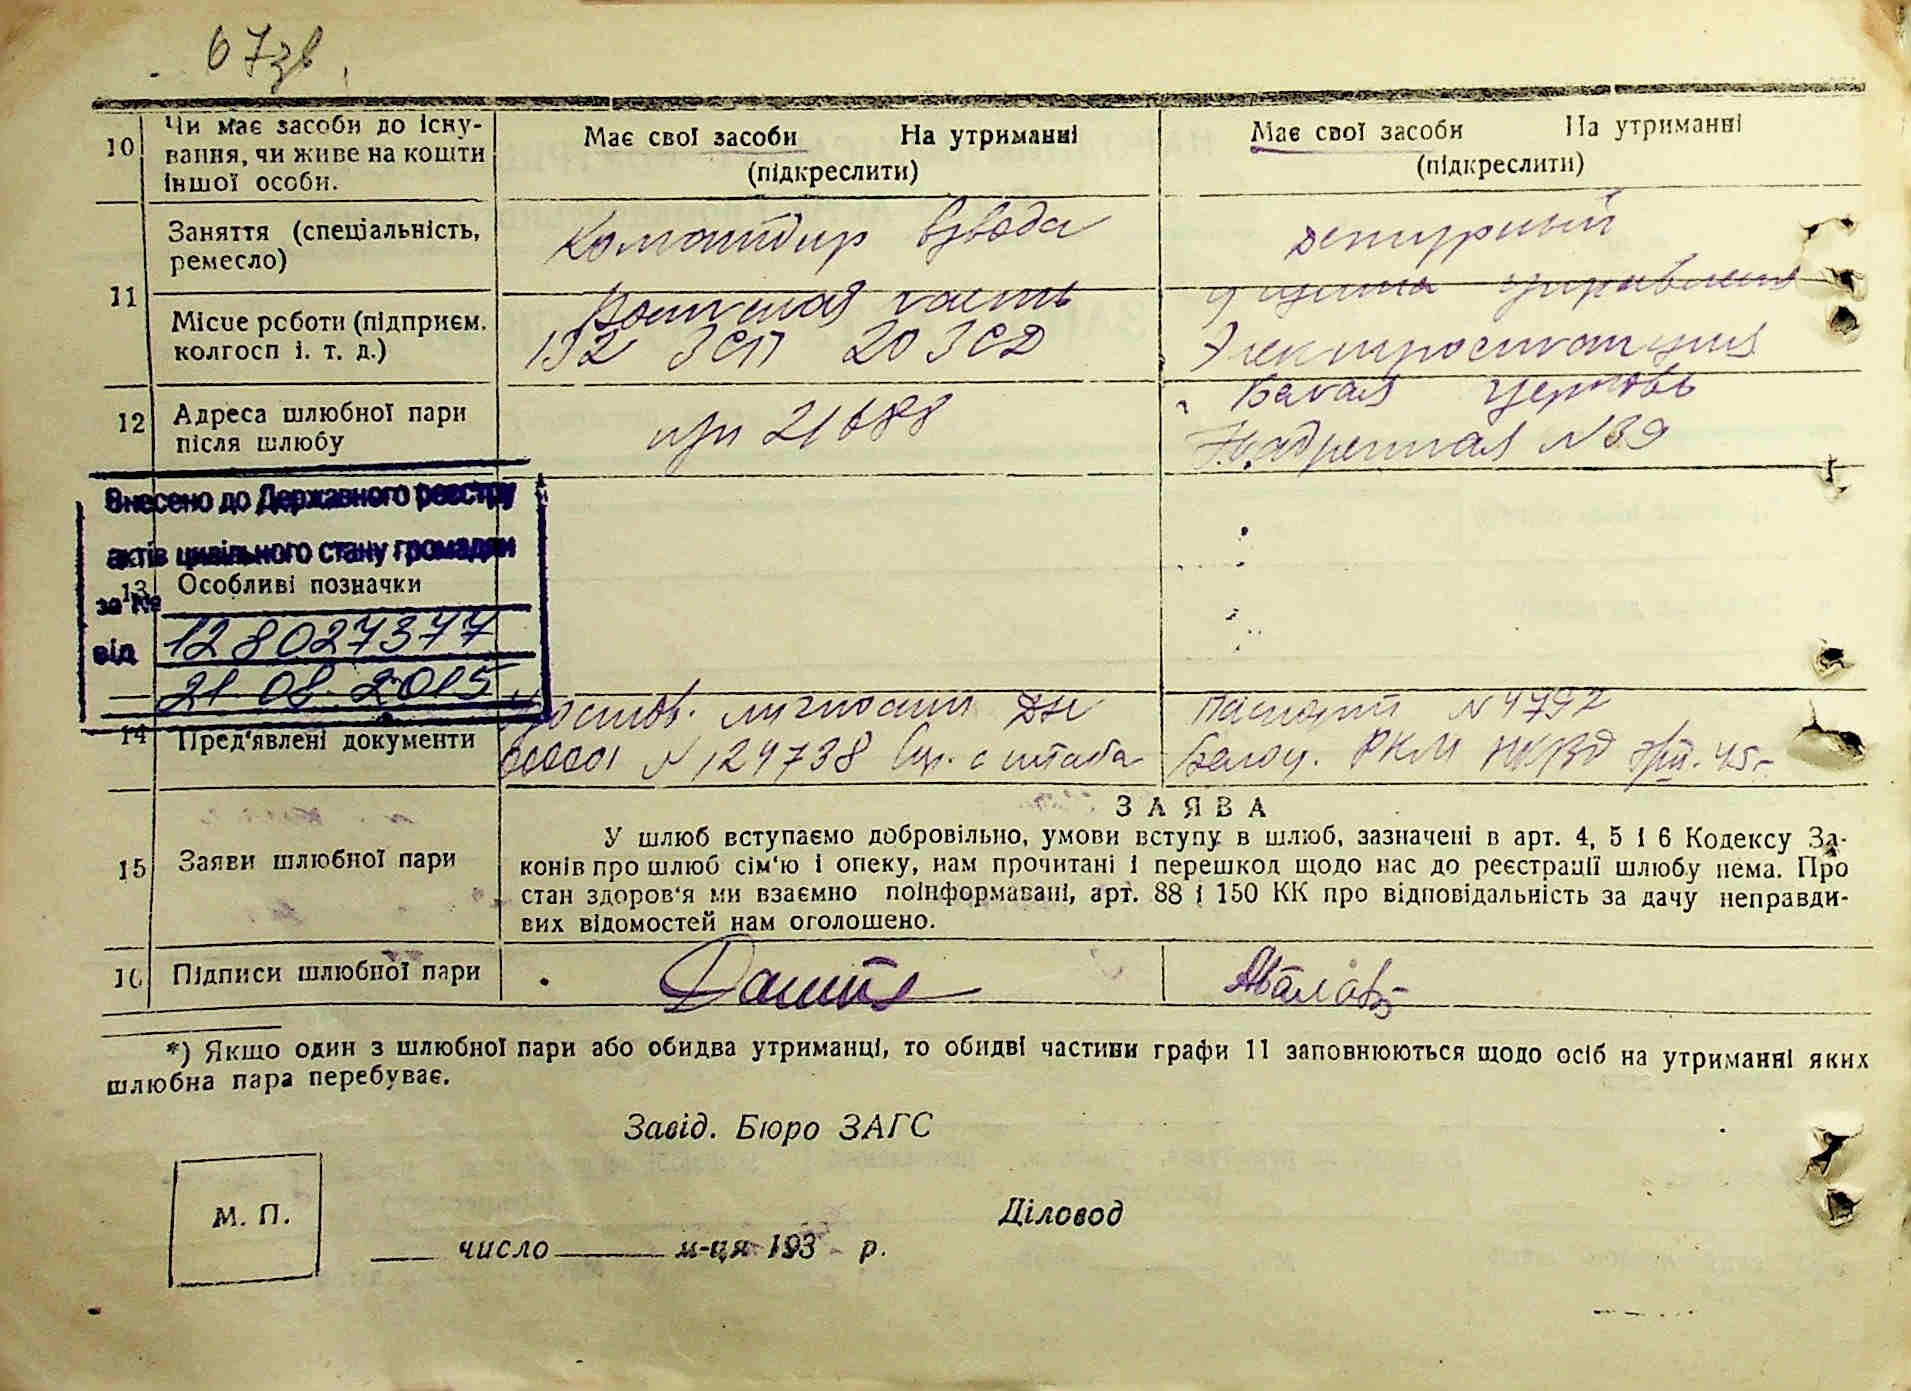 67зв
10 Чи має засоби до існу-
вання, чи живе на кошти
іншої особи.
Має свої засоби На утриманні
(підкреслити)
Має свої засоби На утриманні
(підкреслити)
11 Заняття (спеціальність,
ремесло)
Командир взвода
дежурный
Місце роботи (підприєм.
колгосп і. т. д.)
Воинская часть
192 ЗСП 20 ЗСД
щита управления
Электростанция
12 Адреса шлюбної пари
після шлюбу
пп 21688
Белая Церковь
Надречная №39
Внесено до Державного реєстру
актів цивільного стану громадян
за №
128027377
від
21 08. 2015
13 Особливі позначки
14 Пред'явлені документи
личности
№ 124738 штаба
Паспорт № 4792
Белоц. РКМ НКВД 45г
15 Заяви шлюбної пари
ЗАЯВА
У шлюб вступаємо добровільно, умови вступу в шлюб, зазначені в арт. 4, 5 і 6 Кодексу За-
конів про шлюб сім'ю і опеку, нам прочитані і перешкод щодо нас до реєстрації шлюбу нема. Про
стан здоров'я ми взаємно поінформавані, арт. 88 і 150 КК про відповідальність за дачу неправди-
вих відомостей нам оголошено.
16 Підписи шлюбної пари
*) Якщо один з шлюбної пари або обидва утриманці, то обидві частини графи 11 заповнюються щодо осіб на утриманні яких
шлюбна пара перебуває.
Завід. Бюро ЗАГС
М. П.
Діловод
число м-ця 193 р.